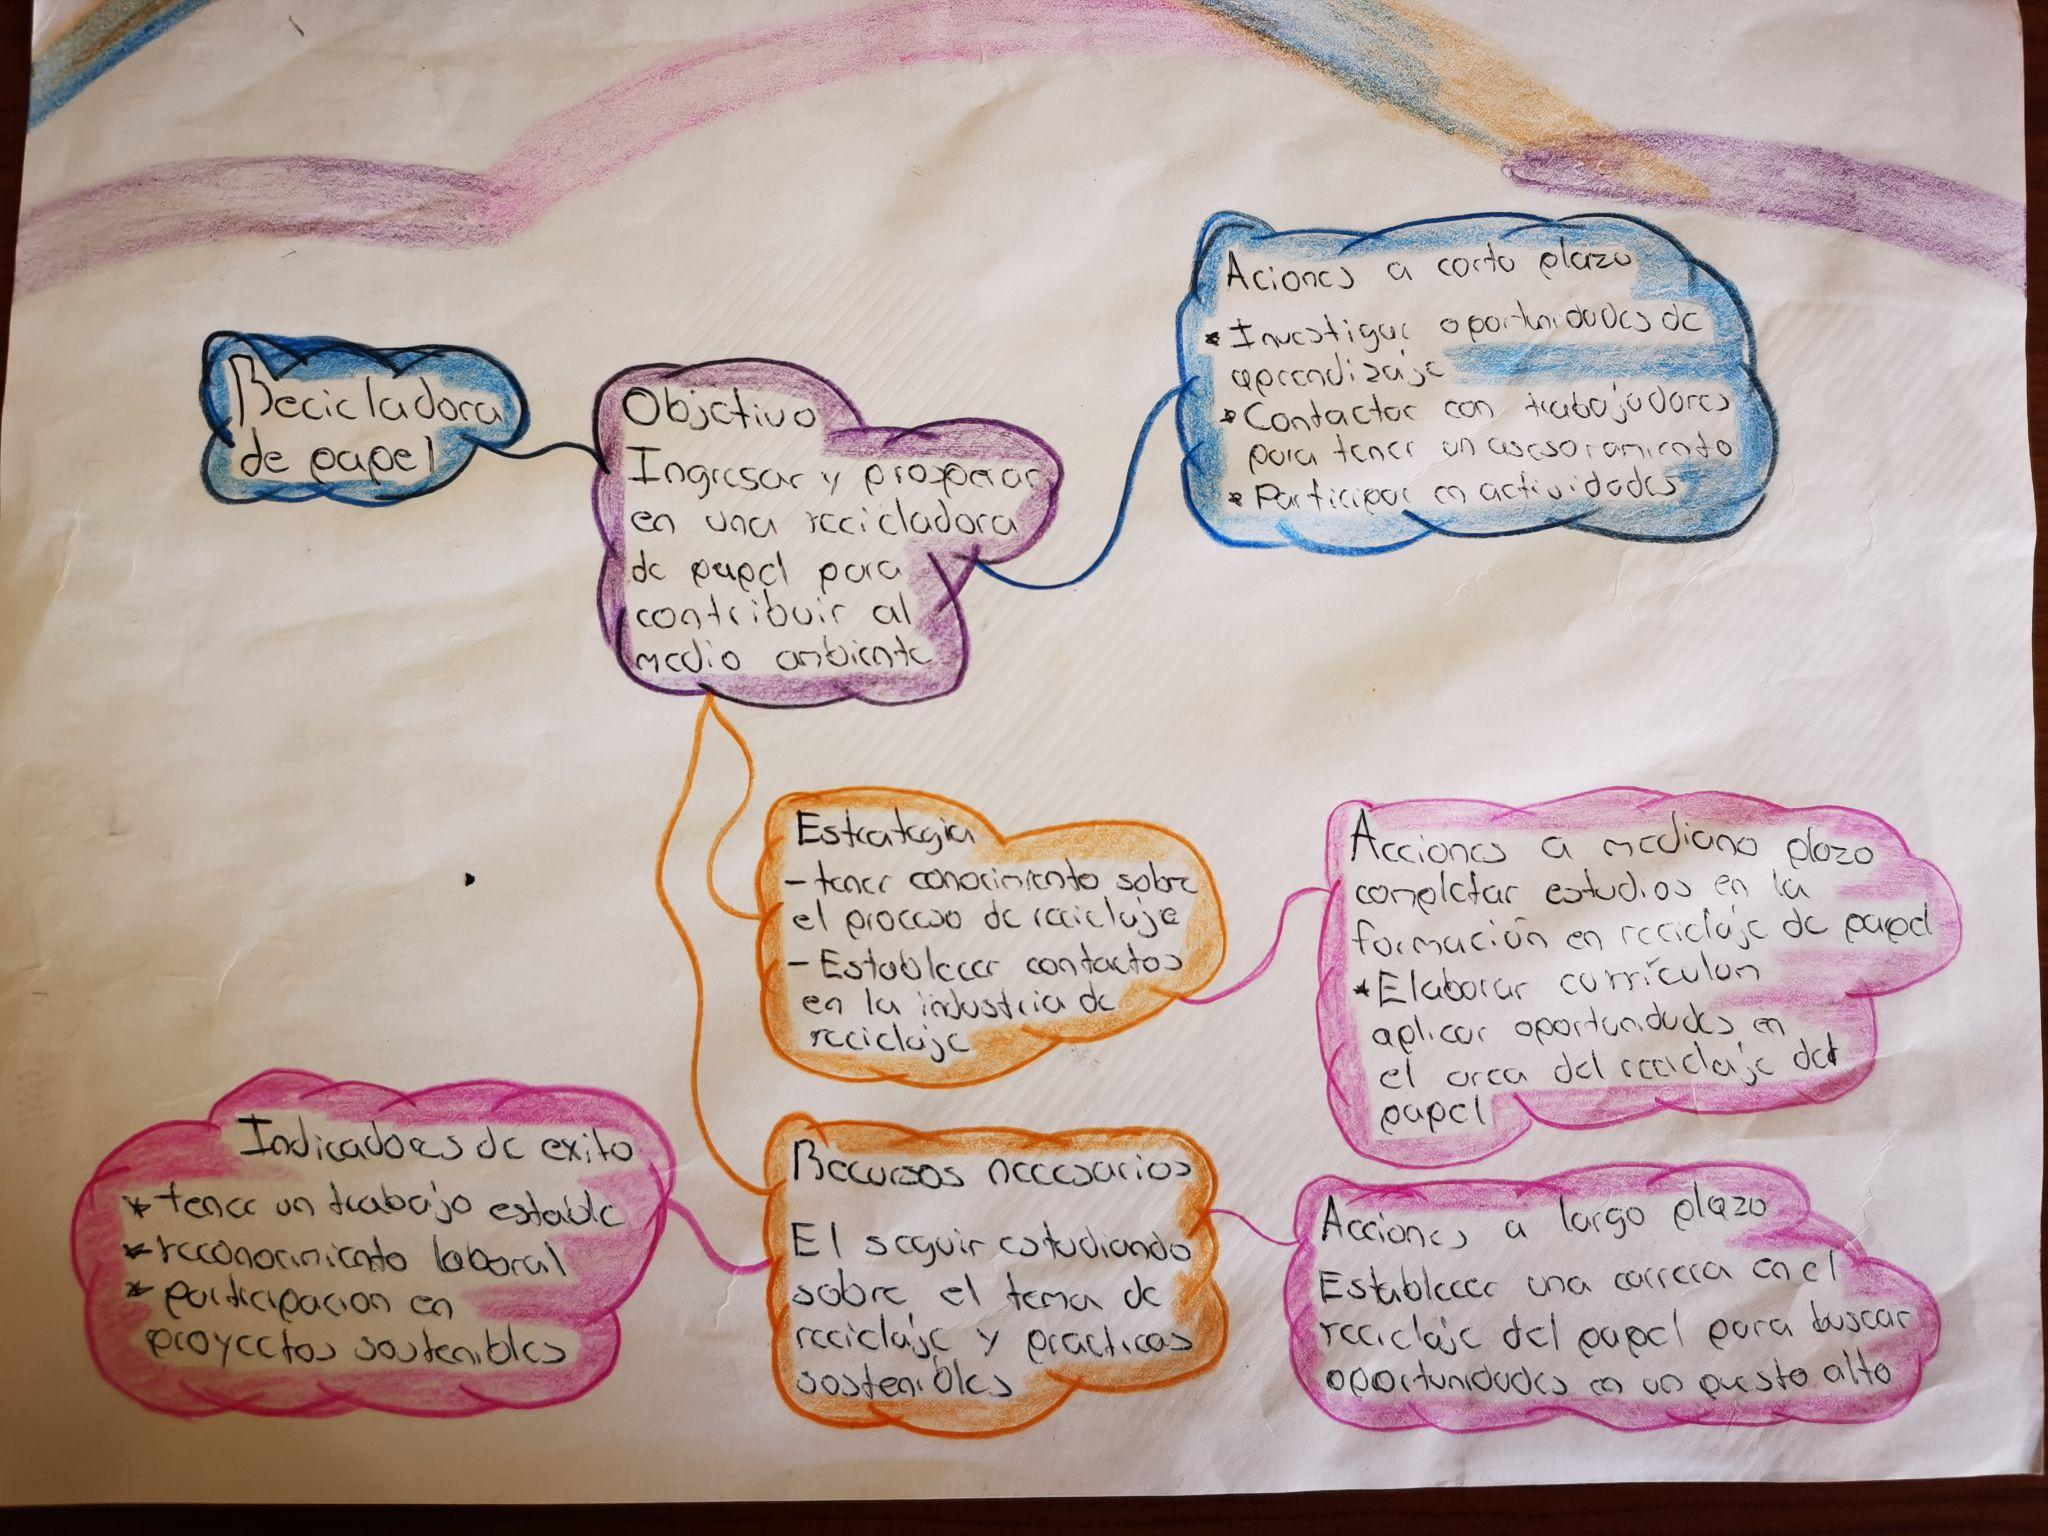 Recicladora
de papel
Objetivo
Ingresar y prosperar
en una recicladora
de papel para
contribuir al
medio ambiente
Aciones a corto plazo
* Investigar oportunidades de
aprendizaje
* Contactar con trabajadores
para tener un asesoramiento
* Participar en actividades
Estrategia
- tener conocimiento sobre
el proceso de reciclaje
- Establecer contactos
en la industria de
reciclaje
Acciones a mediano plazo
completar estudios en la
formación en reciclaje de papel
* Elaborar currículum
aplicar oportunidades en
el area del reciclaje del
papel
Indicadores de exito
* tener un trabajo estable
* reconocimiento laboral
* participacion en
proyectos sostenibles
Recursos necesarios
El seguir estudiando
sobre el tema de
reciclaje y practicas
sostenibles
Acciones a largo plazo
Establecer una carrera en el
reciclaje del papel para buscar
oportunidades en un puesto alto